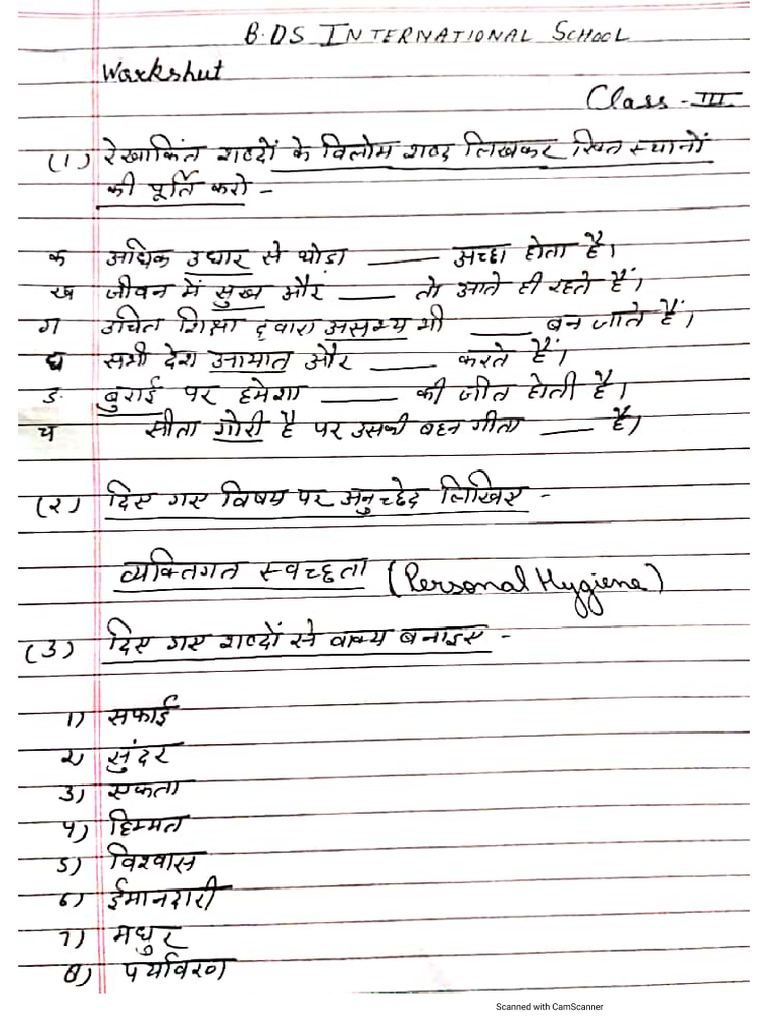 B.DS INTERNATIONAL SCHOOL
Workshut
Class - III
(1) रेखाकिंत शब्दों के विलोम शब्द लिखकर रिक्त स्थानों
की पूर्ति करो -
क अधिक उधार से थोडा ____ अच्छा होता है।
ख जीवन में सुख और ____ तो आते ही रहते हैं।
ग उचित शिक्षा द्वारा असभ्य भी ____ बन जाते हैं।
घ सभी देश आयात और ____ करते हैं।
ड. बुराई पर हमेशा ____ की जीत होती है।
च सीता गोरी है पर उसकी बहन गीता ____ है।
(२) दिए गए विषय पर अनुच्छेद लिखिए -
व्यक्तिगत स्वच्छता (Personal Hygiene)
(3) दिए गए शब्दों से वाक्य बनाइए -
1) सफाई
२) सुंदर
3) एकता
4) हिम्मत
5) विश्वास
6) ईमानदारी
7) मधुर
8) पर्यावरण
Scanned with CamScanner